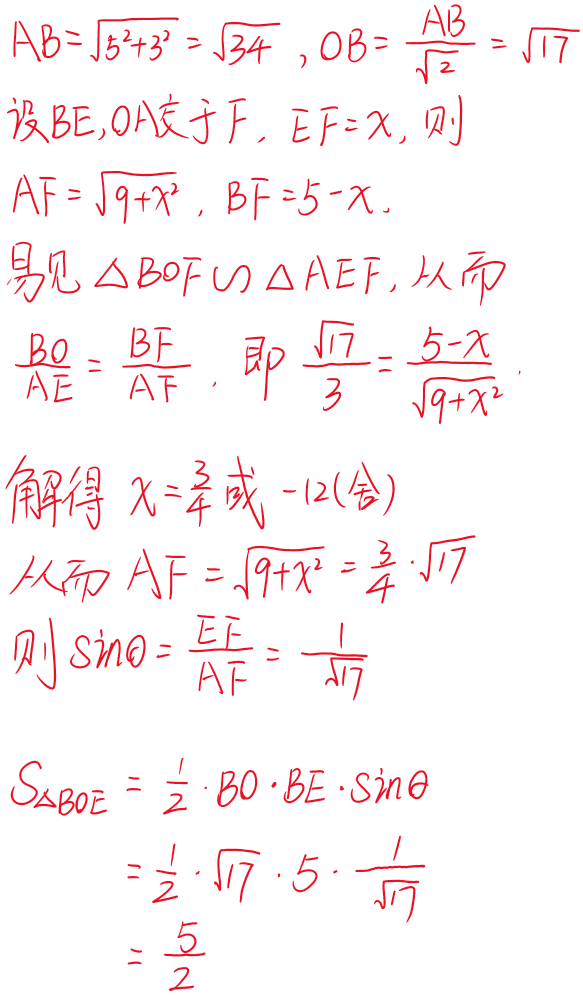 AB=√(5²+3²)=√34，OB=AB/√2=√17
设BE,OA交于F，EF=x，则
AF=√(9+x²)，BF=5-x，
易见△BOF∽△AEF，从而
BO/AE=BF/AF，即 √17/3=(5-x)/√(9+x²)．
解得 x=3/4或 -12(舍)
从而 AF=√(9+x²)=3/4·√17
则 sinθ=EF/AF=1/√17
S△BOE=1/2·BO·BE·sinθ
=1/2·√17·5·1/√17
=5/2